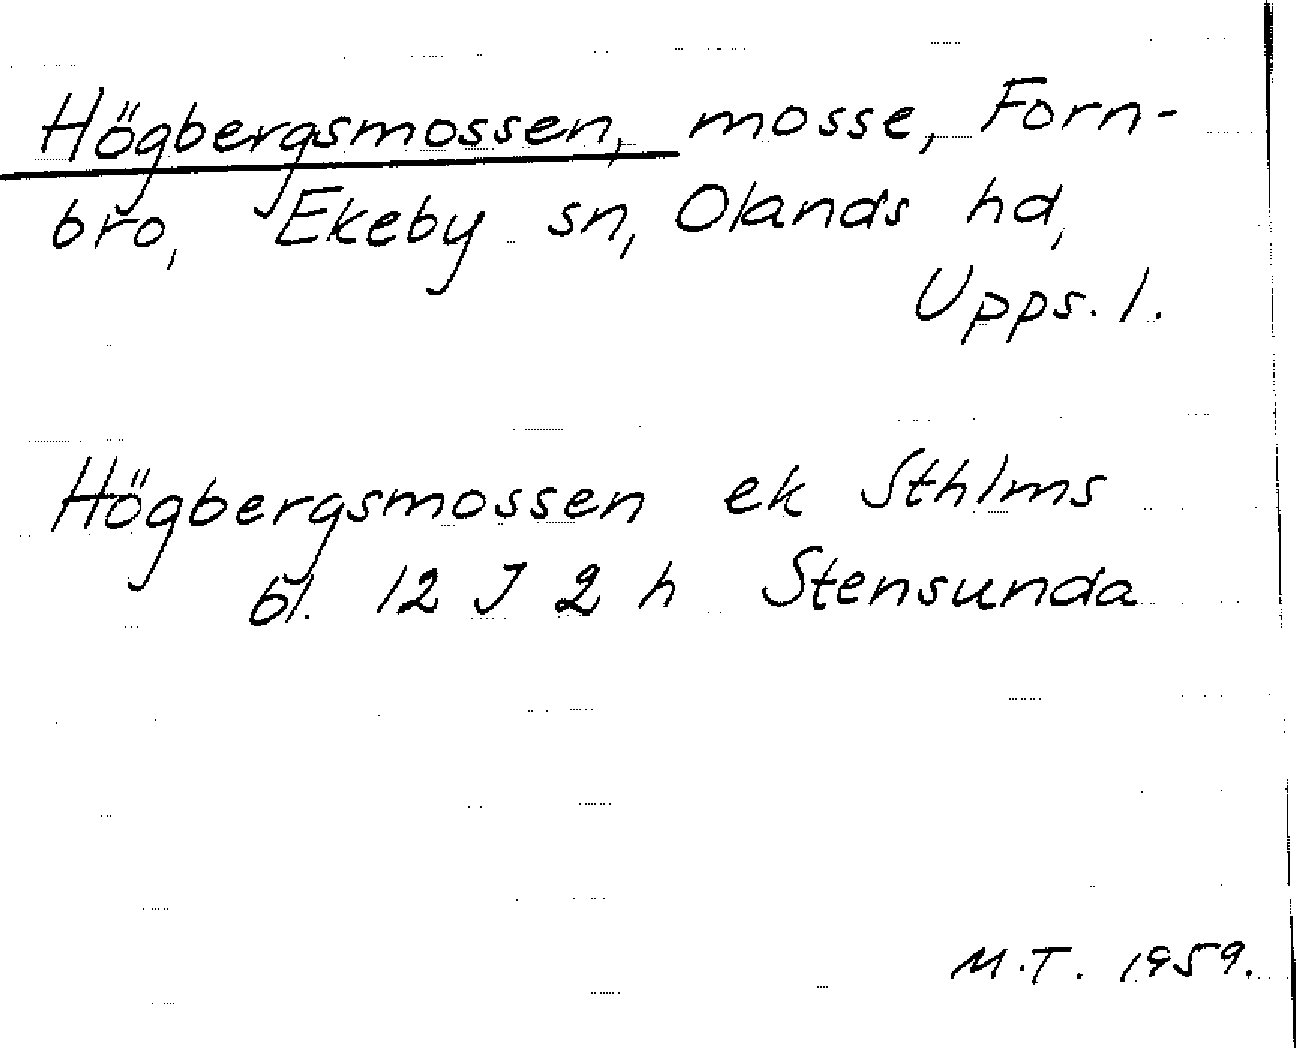 Högbergsmossen, mosse, Forn-
bro, Ekeby sn, Olands hd,
Upps. l.
Högbergsmossen ek Sthlms
bl. 12 J 2 h Stensunda
M.T. 1959.